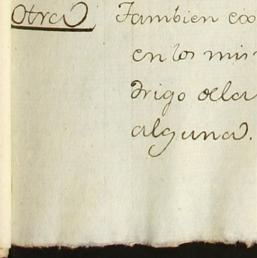 Otra También ex
en los mis
trigo dela
alguna.